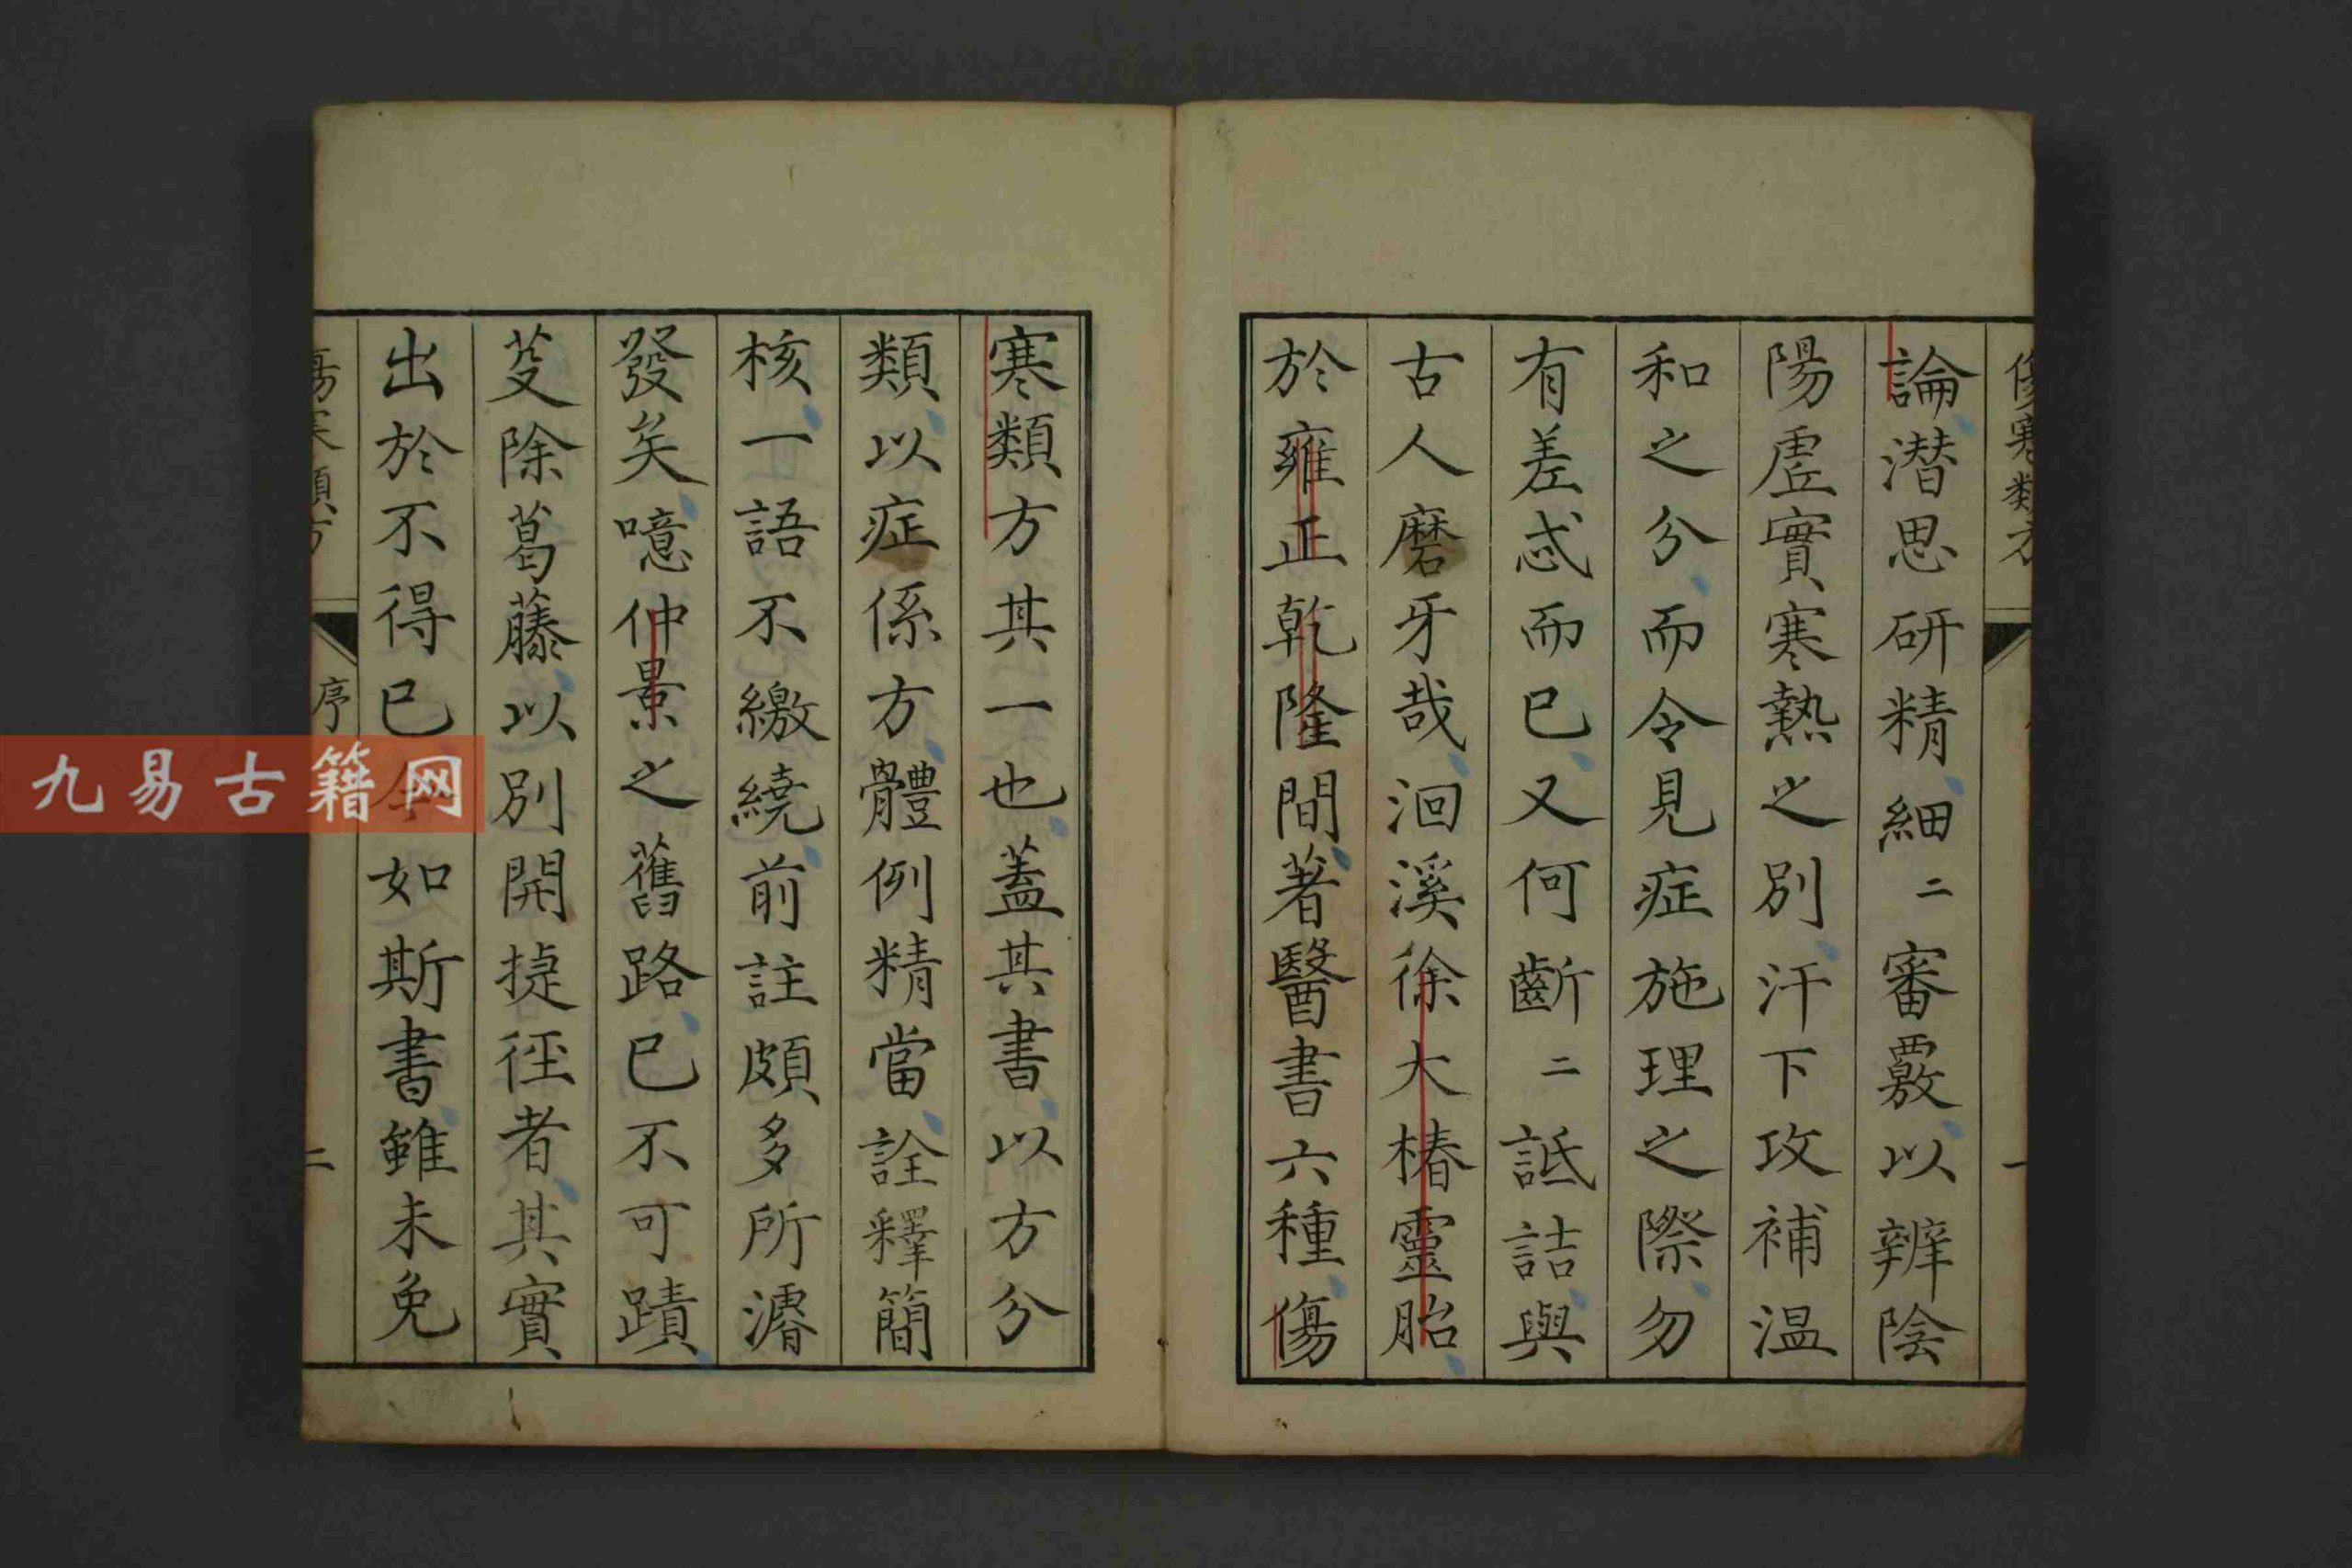 傷寒類方
一
論潛思研精細二審覈以辨陰
陽虛實寒熱之別汗下攻補温
和之分而令見症施理之際勿
有差忒而已又何齗二詆詰與
古人磨牙哉洄溪徐大椿靈胎
於雍正乾隆間著醫書六種傷
寒類方其一也蓋其書以方分
類以症係方體例精當詮釋簡
核一語不繳繞前註頗多所濬
發矣噫仲景之舊路已不可蹟
芟除葛藤以別開捷徑者其實
出於不得已 如斯書雖未免
傷寒類方
序
二
九易古籍网